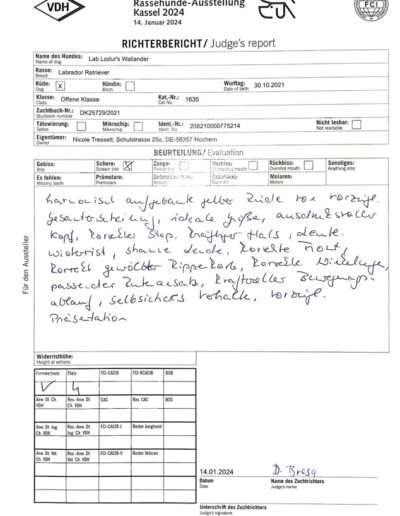 VDH
Rassehunde-Ausstellung
Kassel 2024
14. Januar 2024
FCI
RICHTERBERICHT/ Judge's report
Name des Hundes: Lab Lodur's Wallander
Name of dog
Rasse: Labrador Retriever
Breed
Rüde: x Hündin: Wurftag: 30.10.2021
Dog Bitch Date of birth
Klasse: Offene Klasse Kat.-Nr.: 1635
Class Cat No.
Zuchtbuch-Nr.: DK25729/2021
Studbook number
Tätowierung: Mikrochip: Ident.-Nr.: 208210000775214 Nicht lesbar:
Tattoo Microchip Ident. No. Not readable
Eigentümer: Nicole Tresselt, Schulstrasse 25a, DE-56357 Hochem
Owner
BEURTEILUNG/ Evaluation
Gebiss: Schere: Zange: Vorbiss: Rückbiss: Sonstiges:
Bite Scissor bite Overshot mouth Anything else
Es fehlen: Prämolare: Molaren:
Missing teeth Premolars Molars
harmonisch aufgebauter gelber Rüde von vorzügl.
Gesamterscheinung, ideale Größe, ausdrucksvoller
Kopf, korrekter Stop, kräftiger Hals,
Widerrist, korrekte Front,
korrekt gewölbter Rippenkorb, korrekte Winkelung,
passender Rutenansatz, kraftvolles Bewegungs-
ablauf, selbsicheres verhalte, vorzügl.
Präsentation
Für den Aussteller
Widerristhöhe:
Height at withers
Formwertnote Platz FCI-CACIB FCI-RCACIB BOB
4
Anw. Dt. Ch. VDH Res. Anw. Dt. Ch. VDH CAC Res. CAC BOS
Anw. Dt. Jug. Ch. VDH Res. Anw. Dt. Jug. Ch. VDH FCI-CACIB-J Bester Junghund
Anw. Dt. Vet. Ch. VDH Res. Anw. Dt. Vet. Ch. VDH FCI-CACIB-V Bester Veteran
14.01.2024
Datum Name des Zuchtrichters
Date Judge's name
Unterschrift des Zuchtrichters
Judge's signature